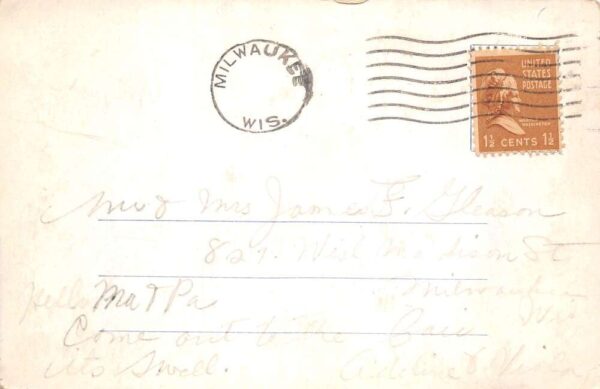 MILWAUKEE
WIS.
UNITED
STATES
POSTAGE
WASHINGTON
1½ CENTS 1½
Mr & Mrs James F. Gleason
821. St
Wis
Hello Ma & Pa
Come out to the
its Swell. Adeline &